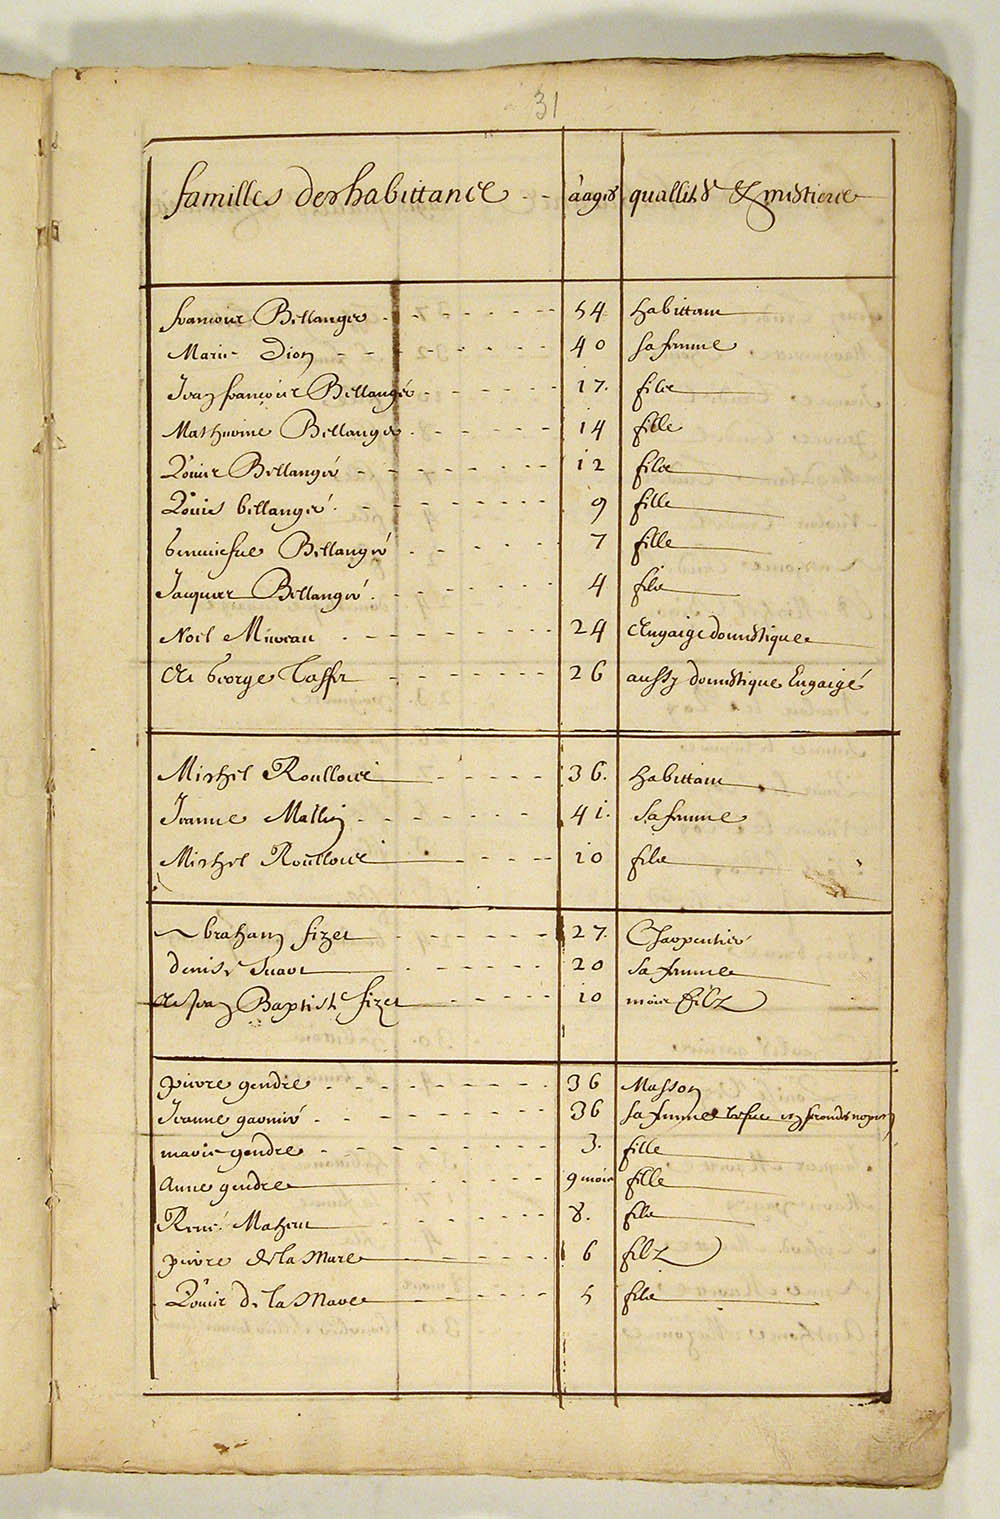 31
familles des habittance aages quallites & mestiere
francois Bellanger 54 habittam
Marie Dion 40 sa femme
Jean francois Bellangé 17. filz
Mathurine Bellange 14 fille
Louis Bellangé 12 filz
Louise bellangé 9 fille
Genuiefue Bellangé 7 fille
Jacques Bellangé 4 filz
Noel Mineau 24 Engaige domestique
Et George 26 aussy domestique Engaigé
Michel Roullois 36. habittam
Jeanne Mallin 41. Sa femme
Michel Roullois 10 filz
Abraham fizet 27. Charpentier
denise 20 Sa femme
Et Jean Baptiste fizet 10 mois filz
pierre gendre 36 Masson
Jeanne garnier 36 sa femme en secondes nopces
marie gendre 3. fille
Anne gendre 9 mois fille
René Maheu 8. filz
pierre de la Mare 6 filz
Louis De la Mare 5 filz